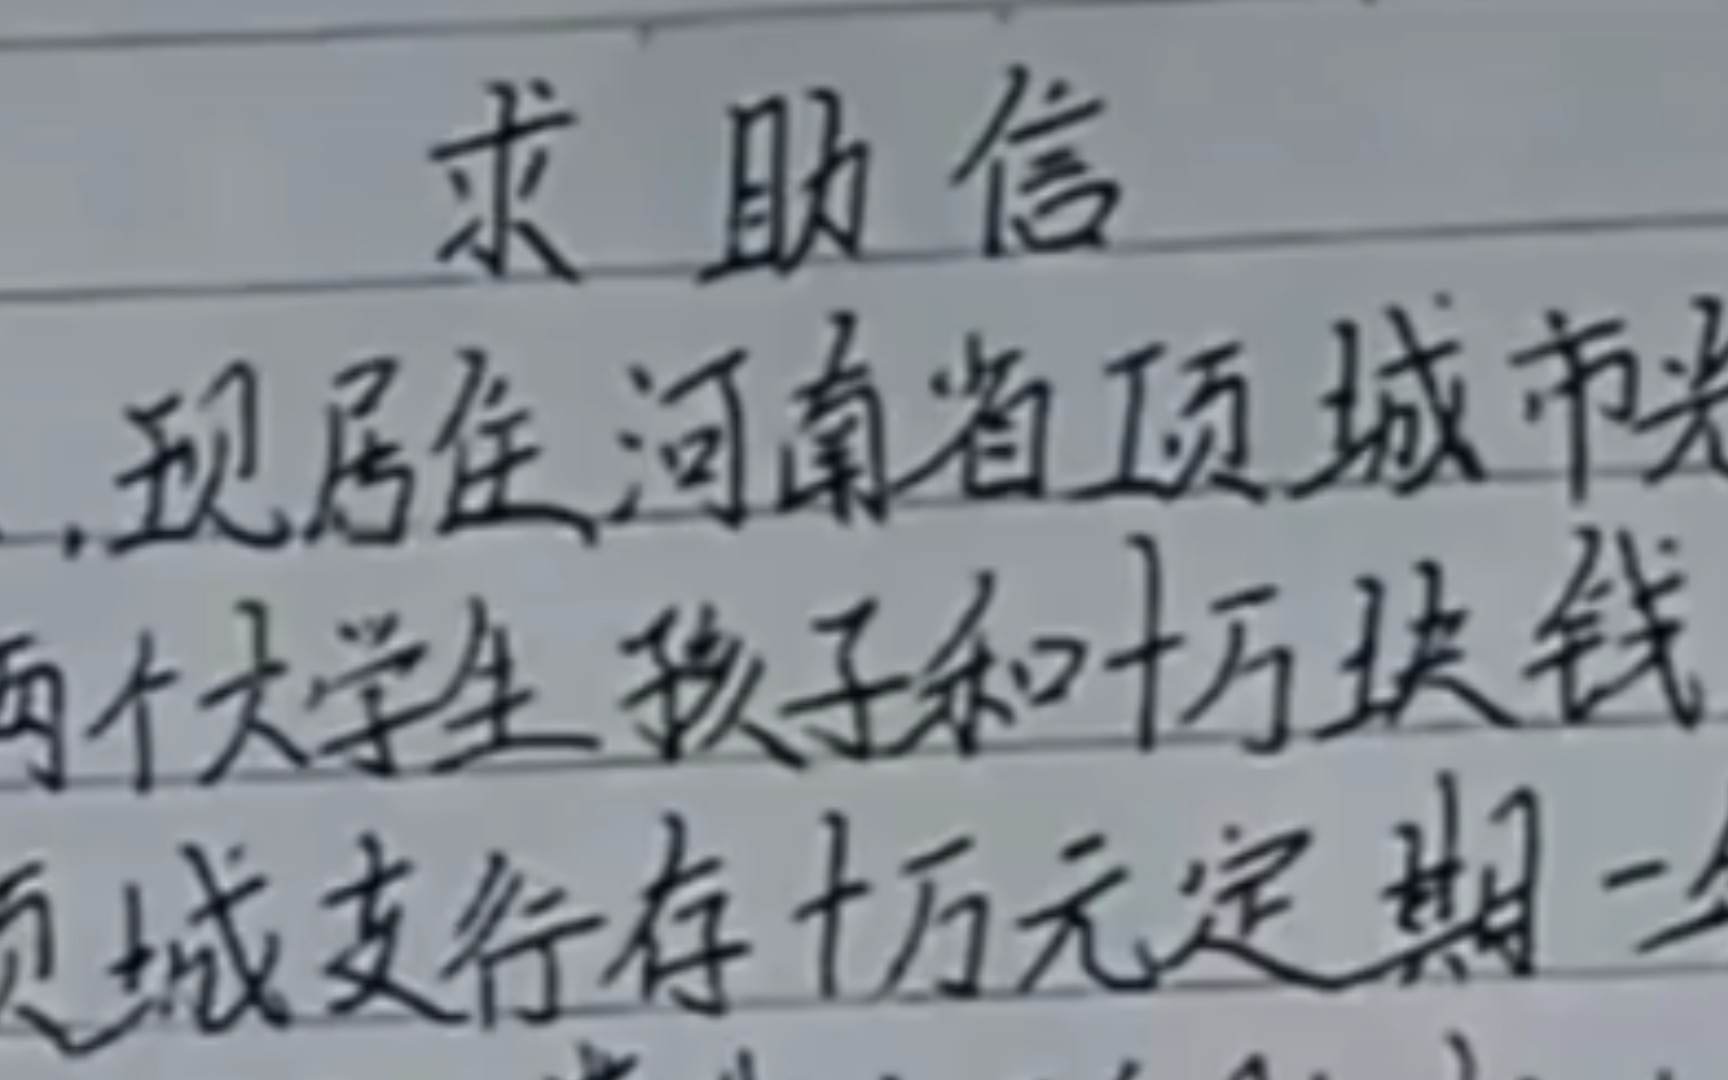 求助信
现居住河南省项城市光
两个大学生孩子和十万块钱
项城支行存十万元定期一年